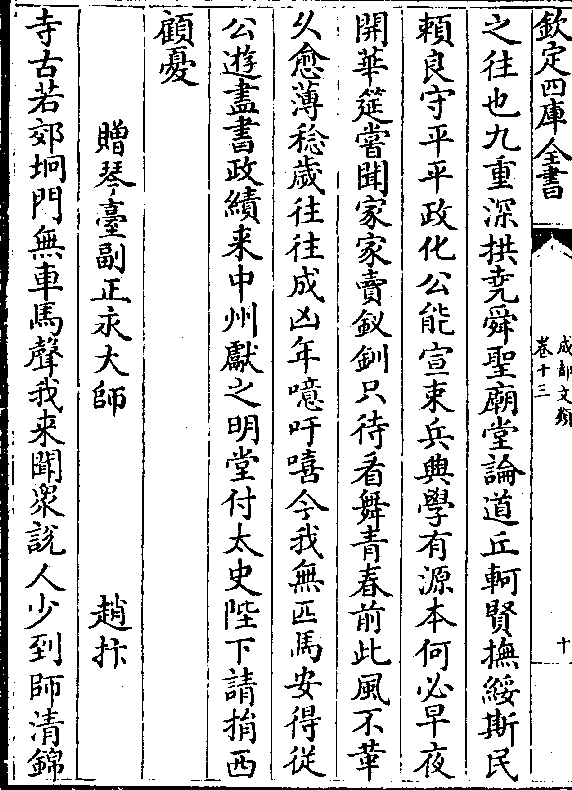 欽定四庫全書
成都文類
卷十三
十
之往也九重深拱堯舜聖廟堂論道丘軻賢撫綏斯民
頼良守平平政化公能宣束兵典學有源本何必早夜
開華筵嘗聞家家賣釵釧只待看舞青春前此風不革
乆愈薄稔歲往往成凶年噫吁嘻今我無匹馬安得從
公遊盡書政績来中州獻之明堂付太史陛下請捐西
顧憂
贈琴臺副正永大師
趙抃
寺古若郊坰門無車馬聲我来聞衆説人少到師清錦